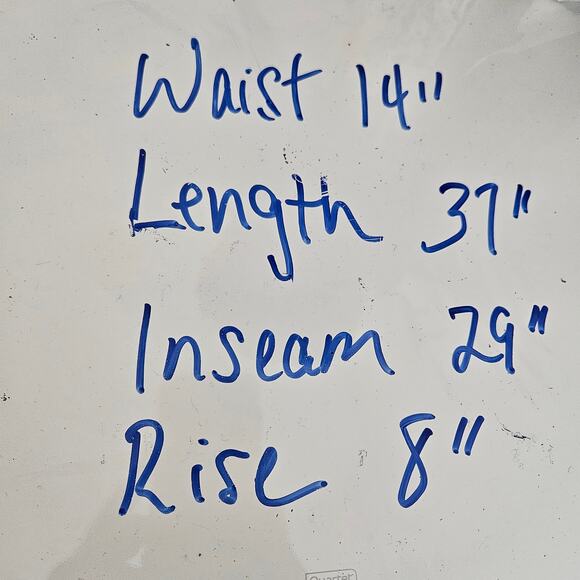 Waist 14"
Length 37"
Inseam 29"
Rise 8"
Quarter